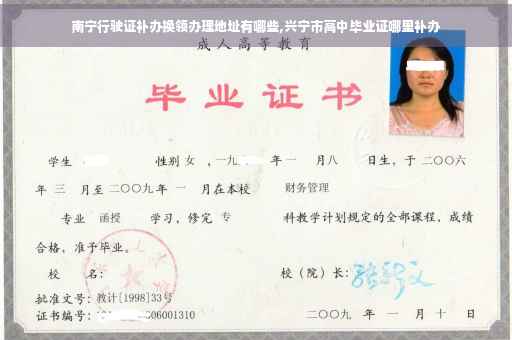 南宁行驶证补办换领办理地址有哪些,兴宁市高中毕业证哪里补办
成人高等教育
毕业证书
学生 性别 女 ,一九 年 一 月八 日生，于 二〇〇六
年 三 月至 二〇〇九 年 一 月在本校 财务管理
专业 函授 学习，修完 专 科教学计划规定的全部课程，成绩
合格，准予毕业。
校 名： 校（院）长：
批准文号：教计[1998]33号
证书编号： 06001310 二〇〇九 年 一 月 十 日